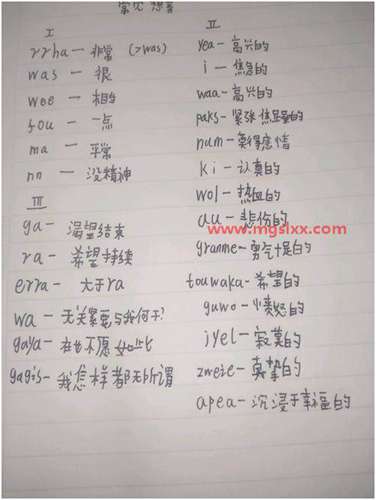 常见
I
rrha — 非常 (>was)
was — 很
wee — 相当
fou — 一点
ma — 平常
nn — 没精神
III
ga — 渴望结束
ra — 希望持续
erra — 大于ra
wa — 无关紧要与我何干?
gaya — 再也不愿如此
gagis — 我怎样都无所谓
II
yea — 高兴的
i — 焦急的
waa — 高兴的
paks — 紧张焦虑的
num — 莫得感情
ki — 认真的
wol — 热血的
au — 悲伤的
www.mgslxx.com
granme — 勇气十足的
touwaka — 希望的
guwo — 愤怒的
jyel — 寂寞的
zweie — 真挚的
apea — 沉浸于幸福的